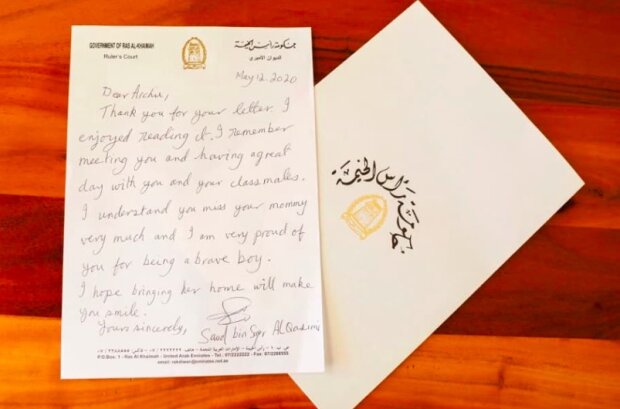 GOVERNMENT OF RAS AL-KHAIMAH
Ruler's Court
حكومة رأس الخيمة
الديوان الأميري
May 12, 2020
Dear Archu,
Thank you for your letter. I
enjoyed reading it. I remember
meeting you and having a great
day with you and your classmates.
I understand you miss your mommy
very much and I am very proud of
you for being a brave boy.
I hope bringing her home will make
you smile.
Yours sincerely,
Saud bin Saqr Al Qasimi
P.O.Box: 1 - Ras Al Khaimah - United Arab Emirates - Tel: 07/2222222 - Fax: 07/2288555
حكومة رأس الخيمة